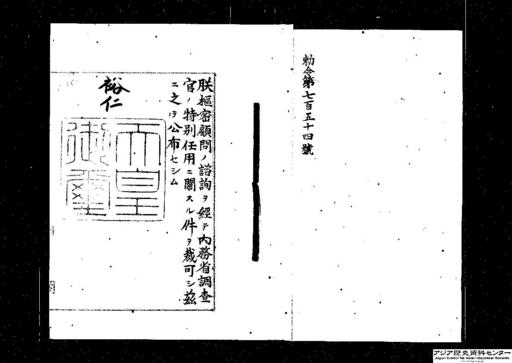 勅令第七百五十四號
朕樞密顧問ノ諮詢ヲ經テ內務省調查
官ノ特別任用ニ關スル件ヲ裁可シ茲
ニ之ヲ公布セシム
裕仁
天皇
御璽
アジア歴史資料センター
Japan Center for Asian Historical Records